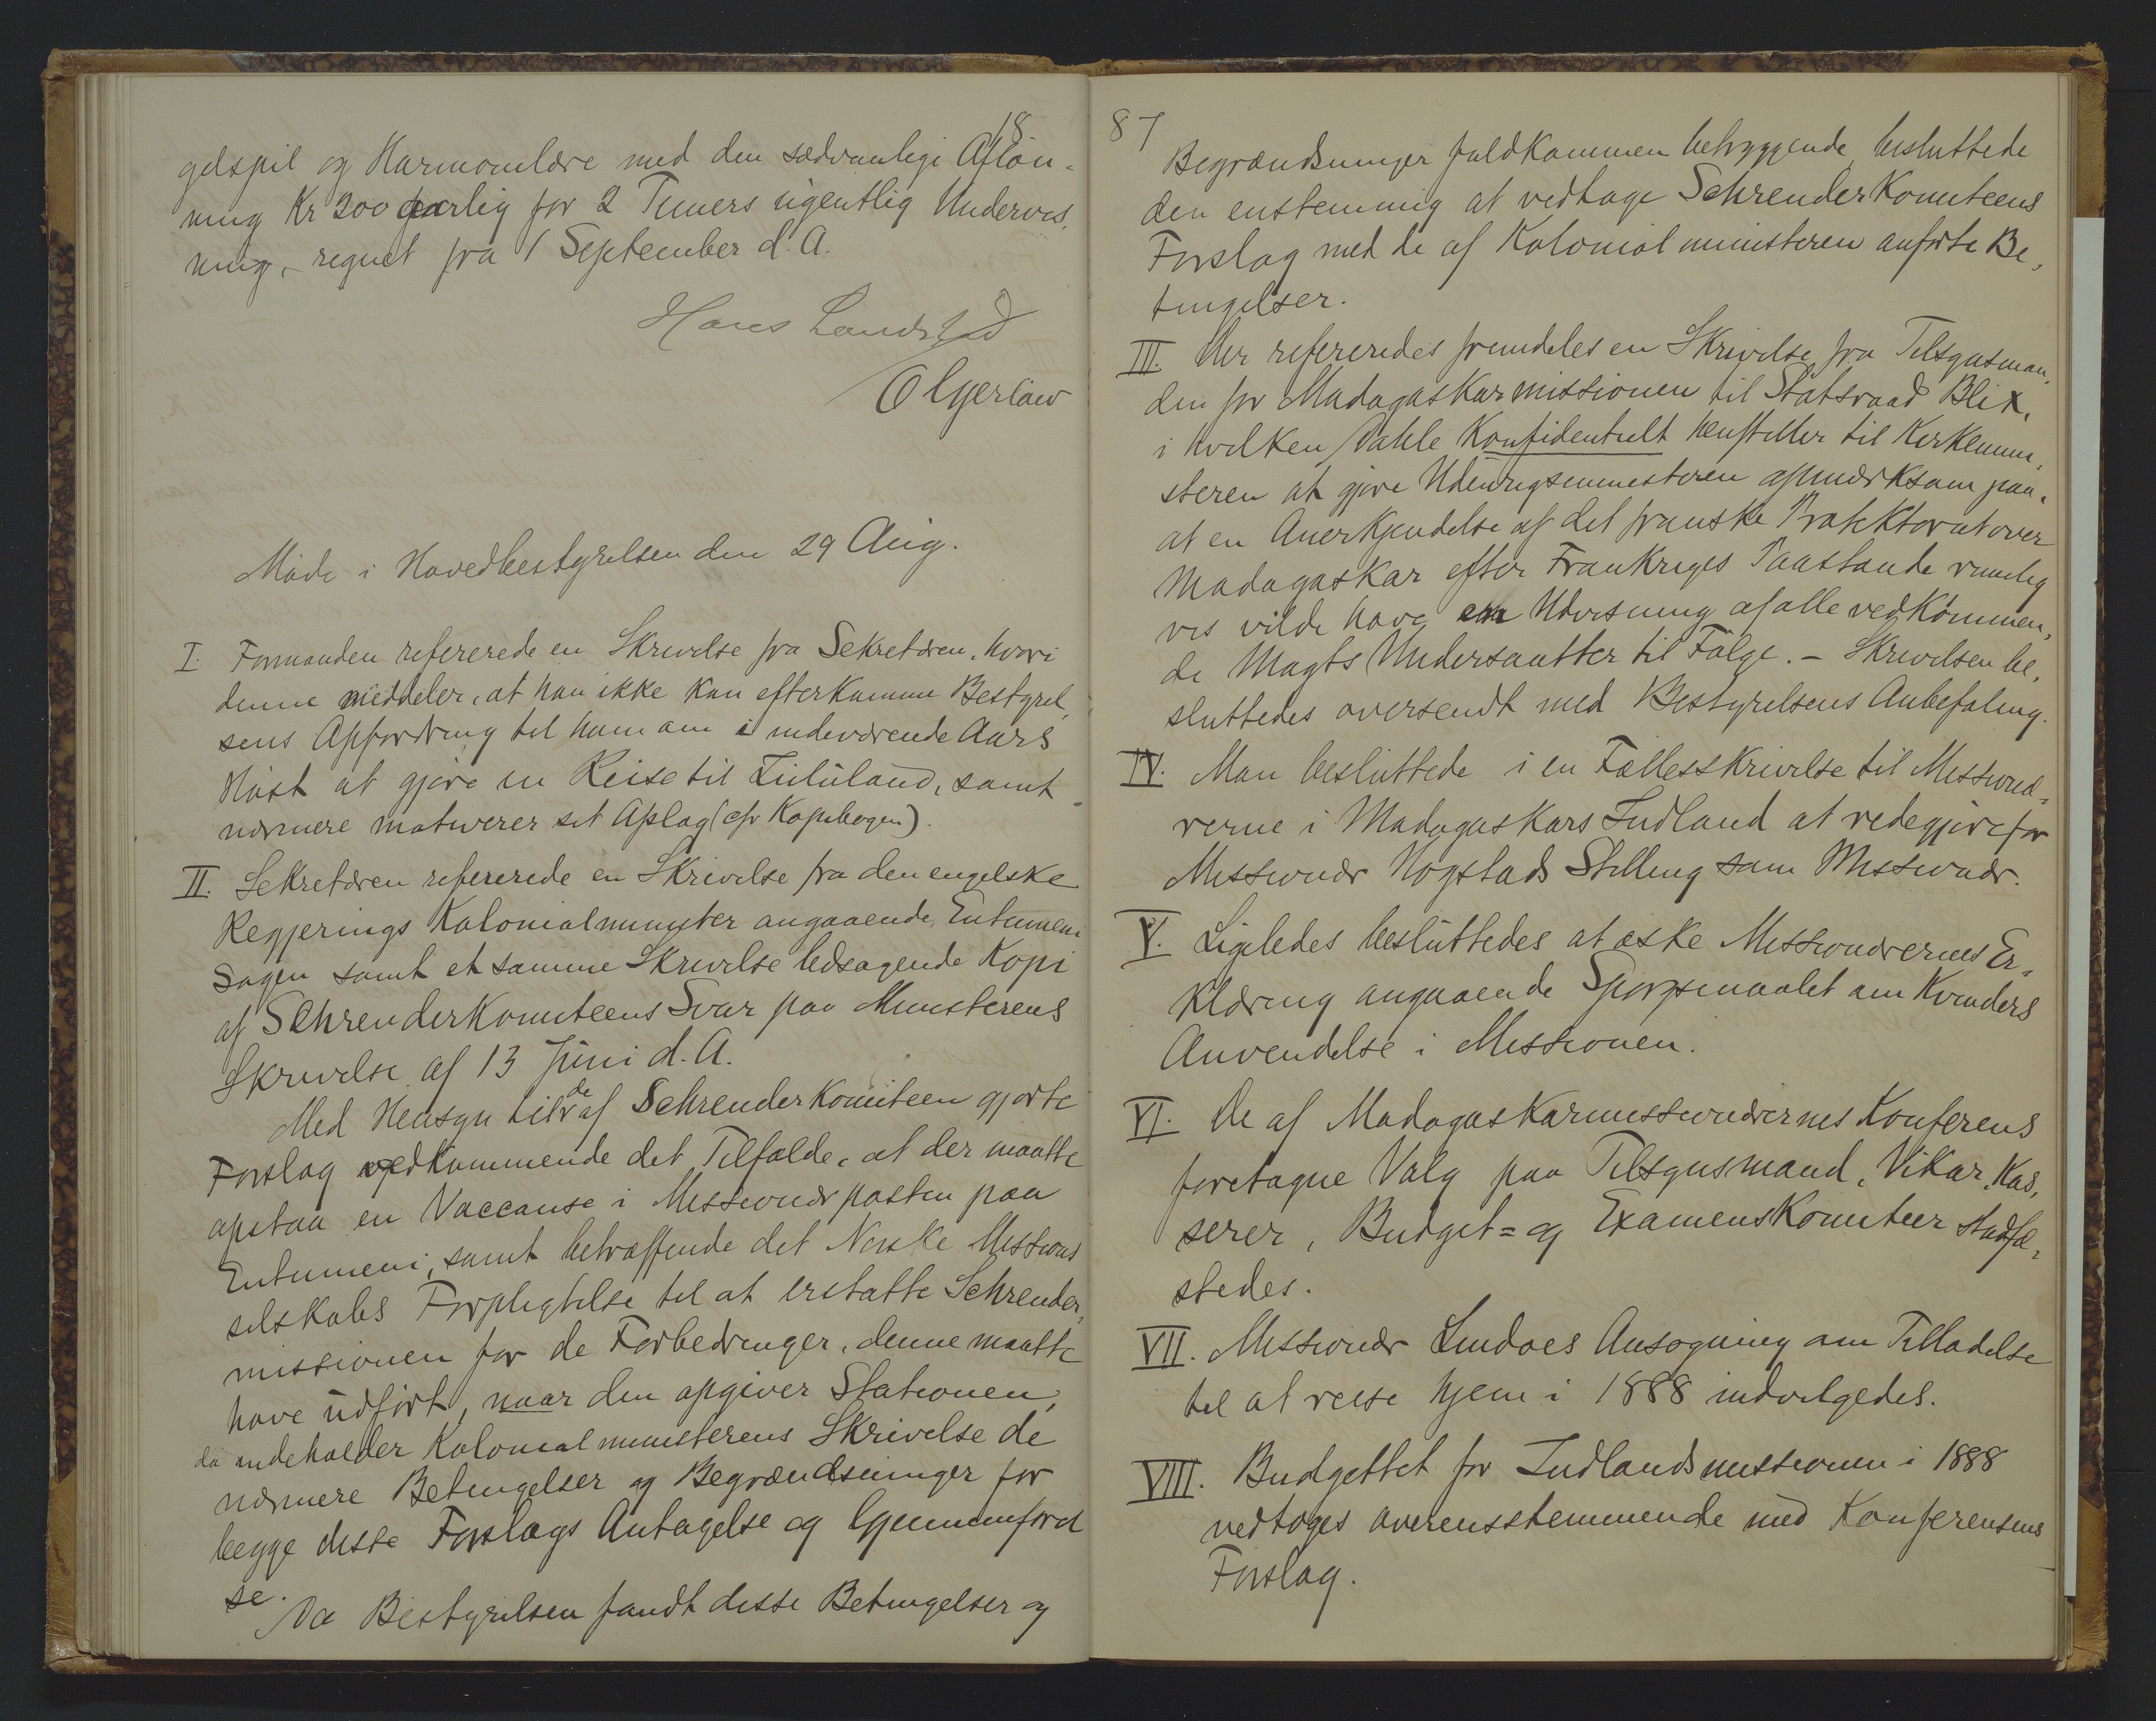 18
gelspil og Harmonilære med den sædvanlige Afløn-
ning Kr 200 aarlig for 2 Timers ugentlig Undervis-
ning, regnet fra 1 September d. A.
Hans Landstad
O Gjerløw
Møde i Hovedbestyrelsen den 29 Aug.
I. Formanden refererede en Skrivelse fra Sekretæren, hvori
denne meddeler, at han ikke kan efterkomme Bestyrel,
sens Opfordring til ham om i indeværende Aars
Høst at gjøre en Reise til Zululand, samt
nærmere motiverer sit Afslag (cfr Kopibogen).
II. Sekretæren refererede en Skrivelse fra den engelske
Regjerings Kolonialminister angaaende Entumeni
Sagen samt et samme Skrivelse ledsagende Kopi
af Schreuderkomiteens Svar paa Ministerens
Skrivelse af 13 Juni d. A.
Med Hensyn til de af Schreuderkomiteen gjorte
Forslag vedkommende det Tilfælde, at der maatte
opstaa en Vaccanse i Missionærposten paa
Entumeni, samt betræffende det Norske Missions
selskabs Forpligtelse til at erstatte Schreuder,
missionen for de Forbedringer, denne maatte
have udført, naar den opgiver Stationen,
da indeholder Kolonialministerens Skrivelse de
nærmere Betingelser og Begrændsninger for
begge disse Forslags Antagelse og Gjennemførel
se.
Da Bestyrelsen fandt disse Betingelser og
87
Begrændsninger fuldkommen betryggende, besluttede
den enstemmig at vedtage Schreuderkomiteens
Forslag med de af Kolonialministeren anførte Be,
tingelser.
III. Der refereredes fremdeles en Skrivelse fra Tilsynsman,
den for Madagaskarmissionen til Statsraad Blix,
i hvilken Dahle Konfidentielt henstiller til Kirkemini,
steren at gjøre Udenrigsministeren opmærksom paa,
at en Anerkjendelse af det franske Protektorat over
Madagaskar efter Frankriges Paastande rimelig
vis vilde have en Udvisning af alle vedkommen,
de Magts Undersaatter til Følge. – Skrivelsen be,
sluttedes oversendt med Bestyrelsens Anbefaling.
IV. Man besluttede i en Fællesskrivelse til Missionæ,
rerne i Madagaskars Indland at redegjøre for
Missionær Høgstads Stilling som Missionær.
V. Ligeledes besluttedes at æske Missionærernes Er,
klæring angaaende Spørgsmaalet om Kvinders
Anvendelse i Missionen.
VI. De af Madagaskarmissionærernes Konferens
foretagne Valg paa Tilsynsmand, Vikar, Kas,
serer, Budget= og Examenskomiteer stadfæ,
stedes.
VII. Missionær Lindøes Ansøgning om Tilladelse
til at reise hjem i 1888 indvilgedes.
VIII. Budgettet for Indlandsmissionen i 1888
vedtoges overensstemmende med Konferensens
Forslag.